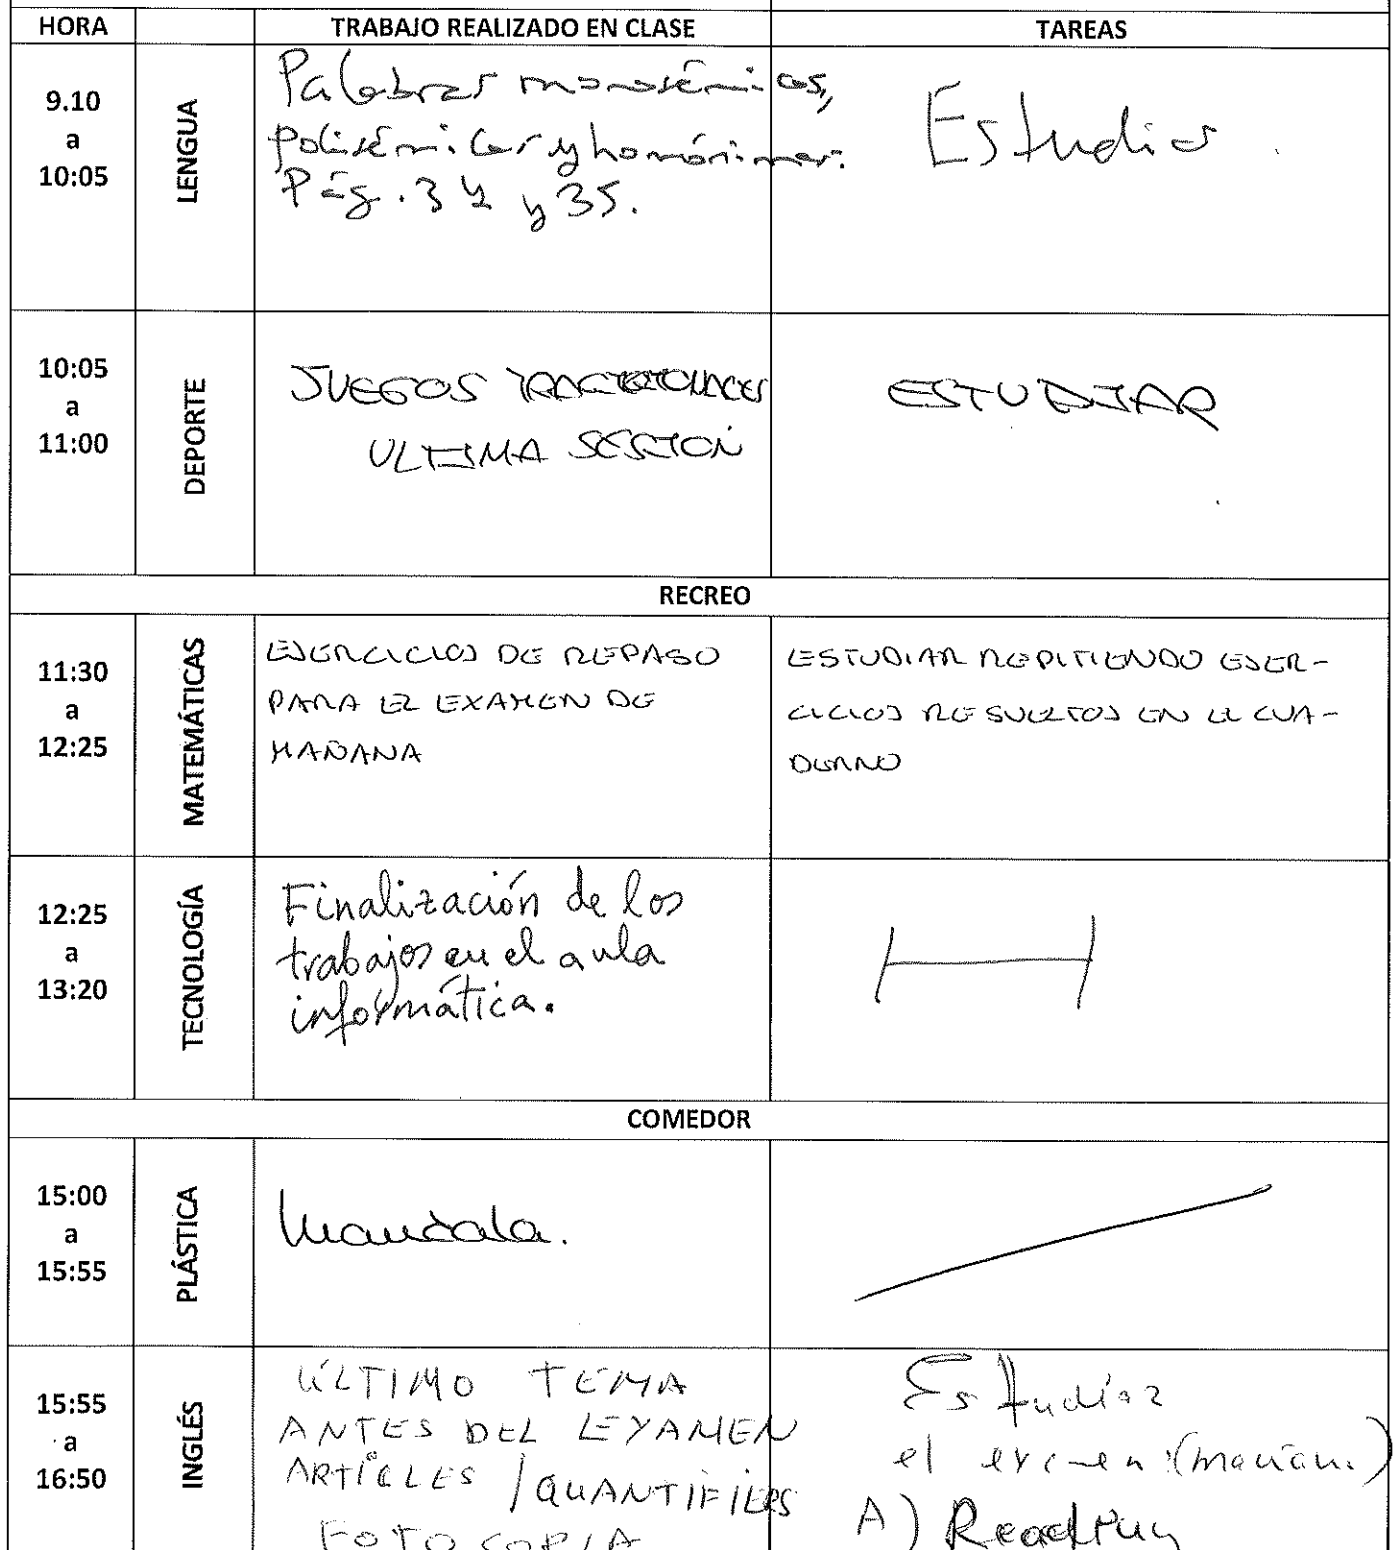 HORA TRABAJO REALIZADO EN CLASE TAREAS
9.10
a
10:05
LENGUA
Palabras monosémicas,
polisémicas y homónimas.
Pág. 34 y 35.
Estudiar
10:05
a
11:00
DEPORTE
JUEGOS TRADICIONALES
ULTIMA SESION
ESTUDIAR
RECREO
11:30
a
12:25
MATEMÁTICAS
EJERCICIOS DE REPASO
PARA EL EXAMEN DE
MAÑANA
ESTUDIAR REPITIENDO EJER-
CICIOS RESUELTOS EN EL CUA-
DERNO
12:25
a
13:20
TECNOLOGÍA
Finalización de los
trabajos en el aula
informática.
COMEDOR
15:00
a
15:55
PLÁSTICA
Mandala.
15:55
a
16:50
INGLÉS
ÚLTIMO TEMA
ANTES DEL EXAMEN
ARTICLES / QUANTIFIERS
FOTOCOPIA
Estudiar
el examen (mañana)
A) Reading